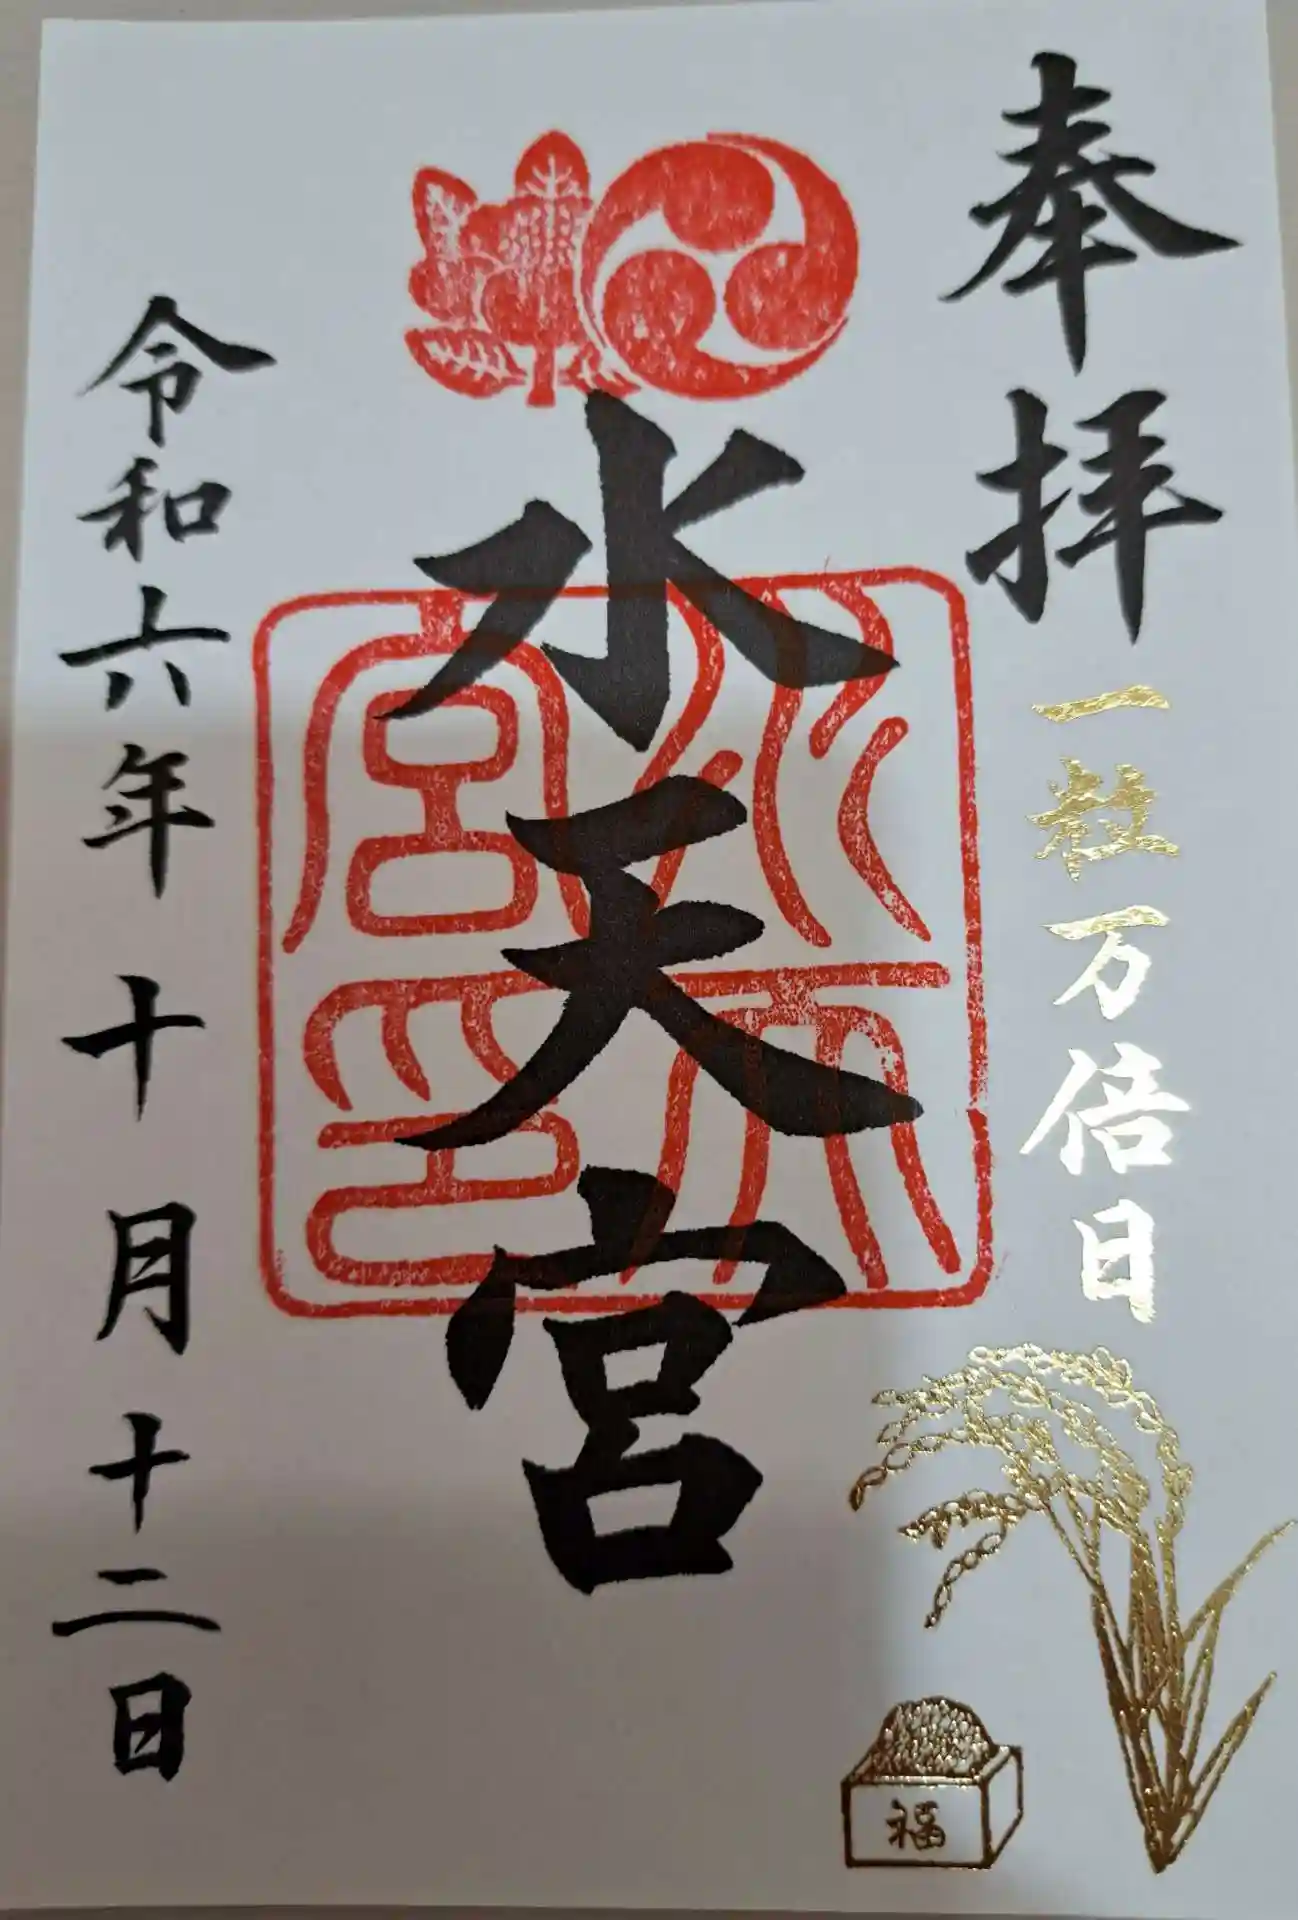 奉拝
一粒万倍日
福
水天宮
水天宮印
令和六年十月十二日